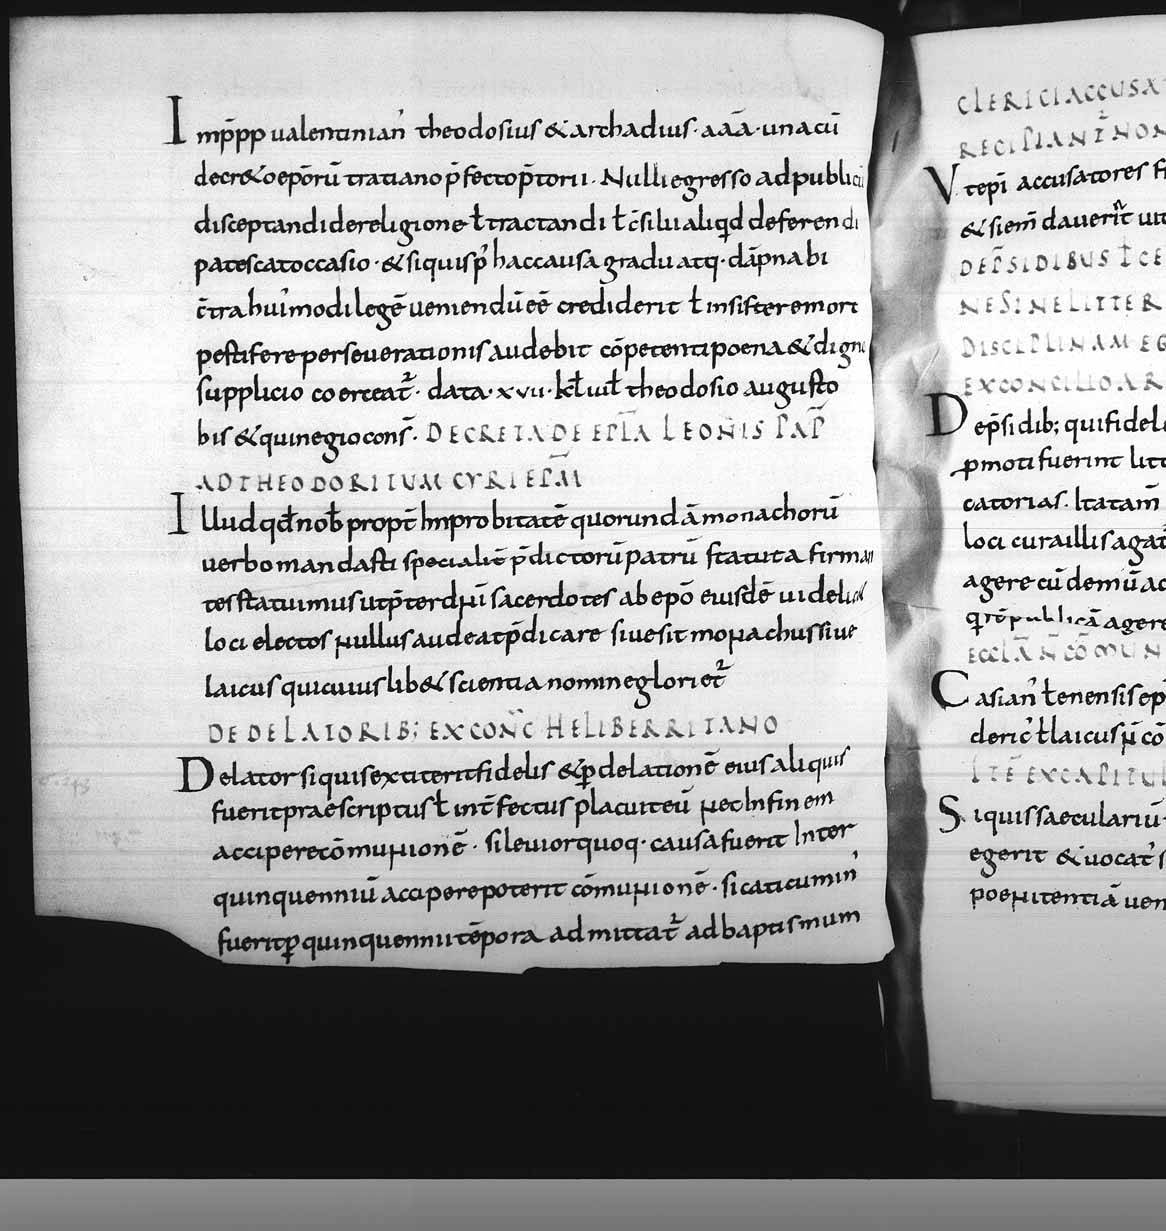 Imp̄ppp ualentinian̄ theodosius & archadius· aaā· unacū
decr&oep̄orū tratiano p̄fectop̄torii. Nulli egresso ad publicū
disceptandi de religione ƚ tractandi ƚ c̄silui aliq̄d deferendi
patescat occasio · & siquis p̄ hac causa gradu atq· dāpnabi
c̄tra hui᾽modi legē ueniendū eē crediderit ƚ insistere mort
pestifere perseuerationis audebit cōpetenti poena & digno
supplicio coerceat̄· data· xvii· kƚ iuƚ theodosio augusto
bis & quinegio cons̄· DECRETA DE EPLA LEONIS PAP
AD THEODORITUM CYRI EPM
Illud qd̄ nob̄ propt̄ Inprobitatē quorundā monachorū
uerbo mandasti specialit̄ p̄dictorū patrū statuta firman
tes statuimus ut p̄ter dn̄i sacerdotes ab ep̄o eiusdē uidelic&
loci electos nullus audeat p̄dicare siue sit monachus siue
laicus qui cuiuslib& scientia nomine gloriet̄
DE DELATORIB; EX CONC̄ HELIBERRITANO
Delator siquis extiterit fidelis & p̱ delationē eius aliquis
fuerit praescriptus ƚ int̄fectus placuit eū nec In finem
accipere cōmunionē · si leuior quoq· causa fuerit Inter
quinquenniū accipere poterit cōmunionē · si caticumin᾽
fuerit p̱ quinquennii tēpora admittat̄ ad baptismum
CLERICI ACCUSA
RECIPIANT̄ NON
Vt ep̄i accusatores
& siem̄ dauerīt
DE EP̄S IDIBUS ƚ CE
NE SINE LITTER
DISCIPLINAM EG
EX CONCILIO AR
De ep̄s idib; qui fidel
p̱moti fuerint litt
catorias. Ita tam̄
loci cura illis agat̄
agere cū demū ac
rē publicā agere
ECCLĀ N̄ CŌMUN
Casian᾽ ƚenensis ep
cleric᾽ ƚ laicus n̄ cō
ITĒ EX CAPITUL
Siquis saecularium
egerit & uocat᾽ s
poenitentiā uen